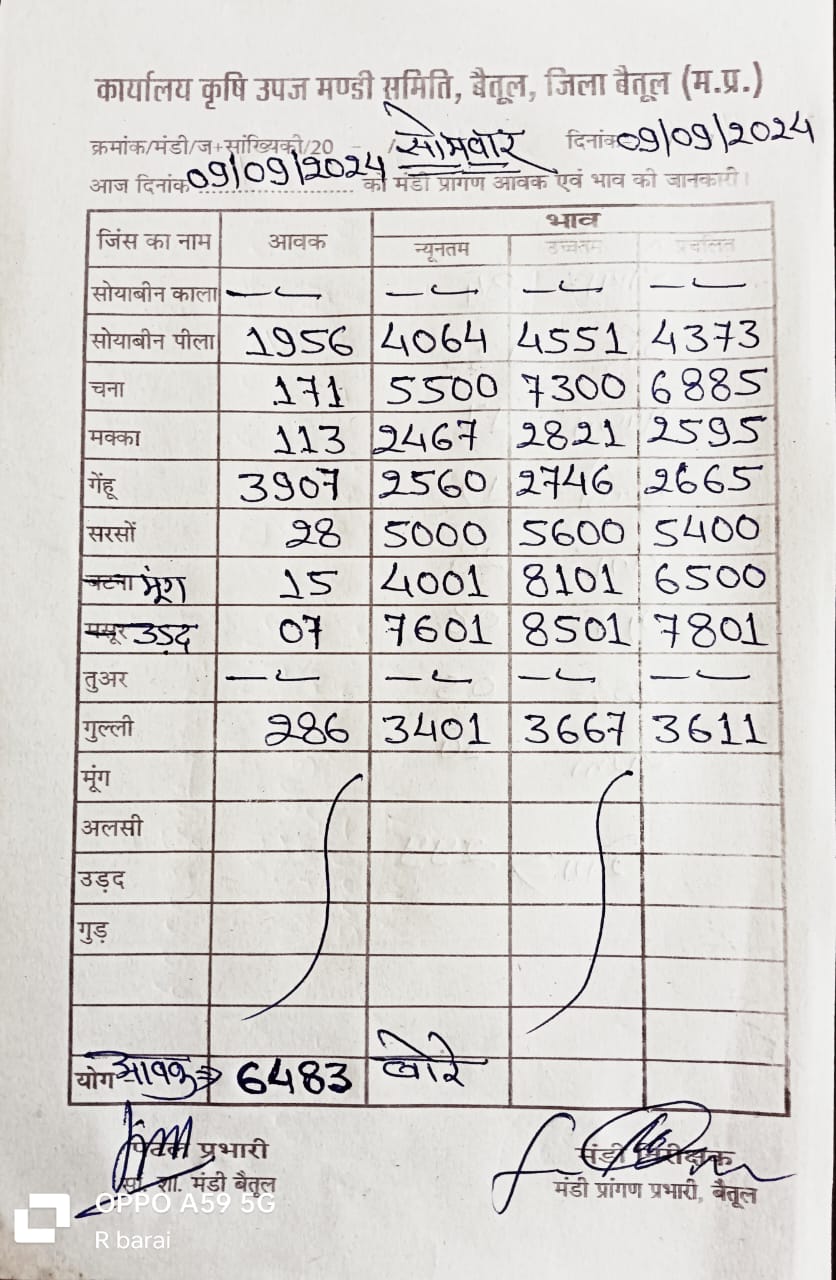 कार्यालय कृषि उपज मण्डी समिति, बैतूल, जिला बैतूल (म.प्र.)
क्रमांक/मंडी/ज+सांख्यिकी/20 - / सोमवार दिनांक 09/09/2024
आज दिनांक 09/09/2024 को मंडी प्रांगण आवक एवं भाव की जानकारी।
जिंस का नाम आवक भाव
न्यूनतम उच्चतम प्रचलित
सोयाबीन काला — — — —
सोयाबीन पीला 1956 4064 4551 4373
चना 171 5500 7300 6885
मक्का 113 2467 2821 2595
गेंहू 3907 2560 2746 2665
सरसों 28 5000 5600 5400
बटना मूंग 15 4001 8101 6500
मसूर उड़द 07 7601 8501 7801
तुअर — — — —
गुल्ली 286 3401 3667 3611
मूंग
अलसी
उड़द
गुड़
योग आवक⇒ 6483 बोरे
प्रभारी मंडी निरीक्षक
सां. शा. मंडी बैतूल मंडी प्रांगण प्रभारी, बैतूल
OPPO A59 5G
R barai